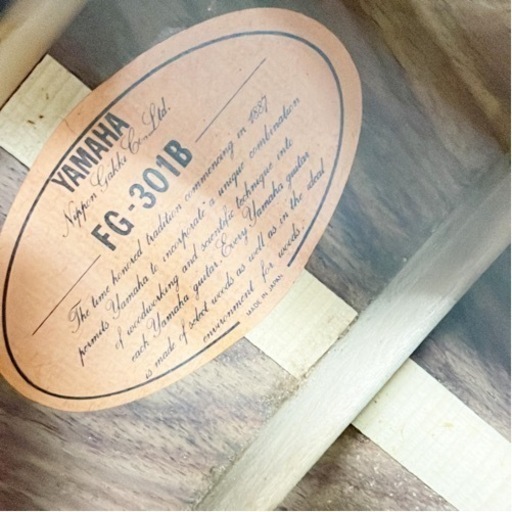 YAMAHA
Nippon Gakki Co., Ltd.
FG-301B
The time honored tradition commencing in 1887
permits Yamaha to incorporate a unique combination
of woodworking and scientific technique into
each Yamaha guitar. Every Yamaha guitar
is made of select woods as well as in the ideal
environment for woods.
MADE IN JAPAN